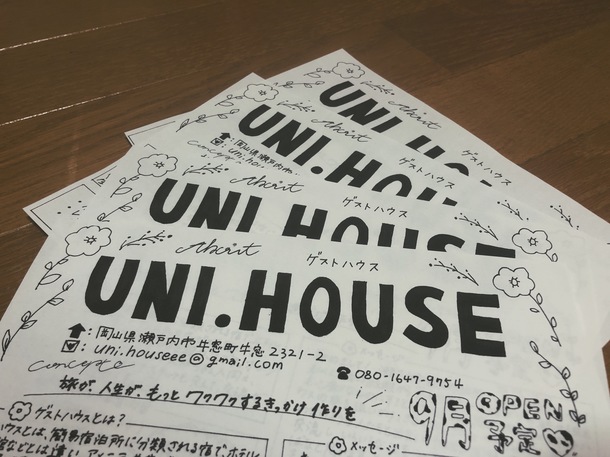 UNI.HOUSE
About
ゲストハウス
UNI.HOUSE
:岡山県瀬戸内市
: uni.hous
concept
About
ゲストハウス
UNI.HOUSE
About
ゲストハウス
UNI.HOUSE
:岡山県瀬戸内市牛窓町牛窓 2321-2
: uni.houseee@gmail.com
☎ 080-1647-9754
concept
旅が、人生が、もっとワクワクするきっかけ作りを
9月 OPEN
予定
ゲストハウスとは?
ハウスとは、簡易宿泊所に分類される宿で、ホテル
メッセージ